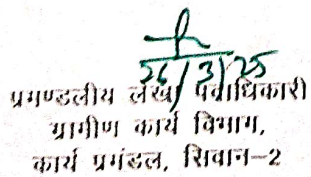 26/3/25
प्रमण्डलीय लेखा पदाधिकारी
ग्रामीण कार्य विभाग,
कार्य प्रमंडल, सिवान-2